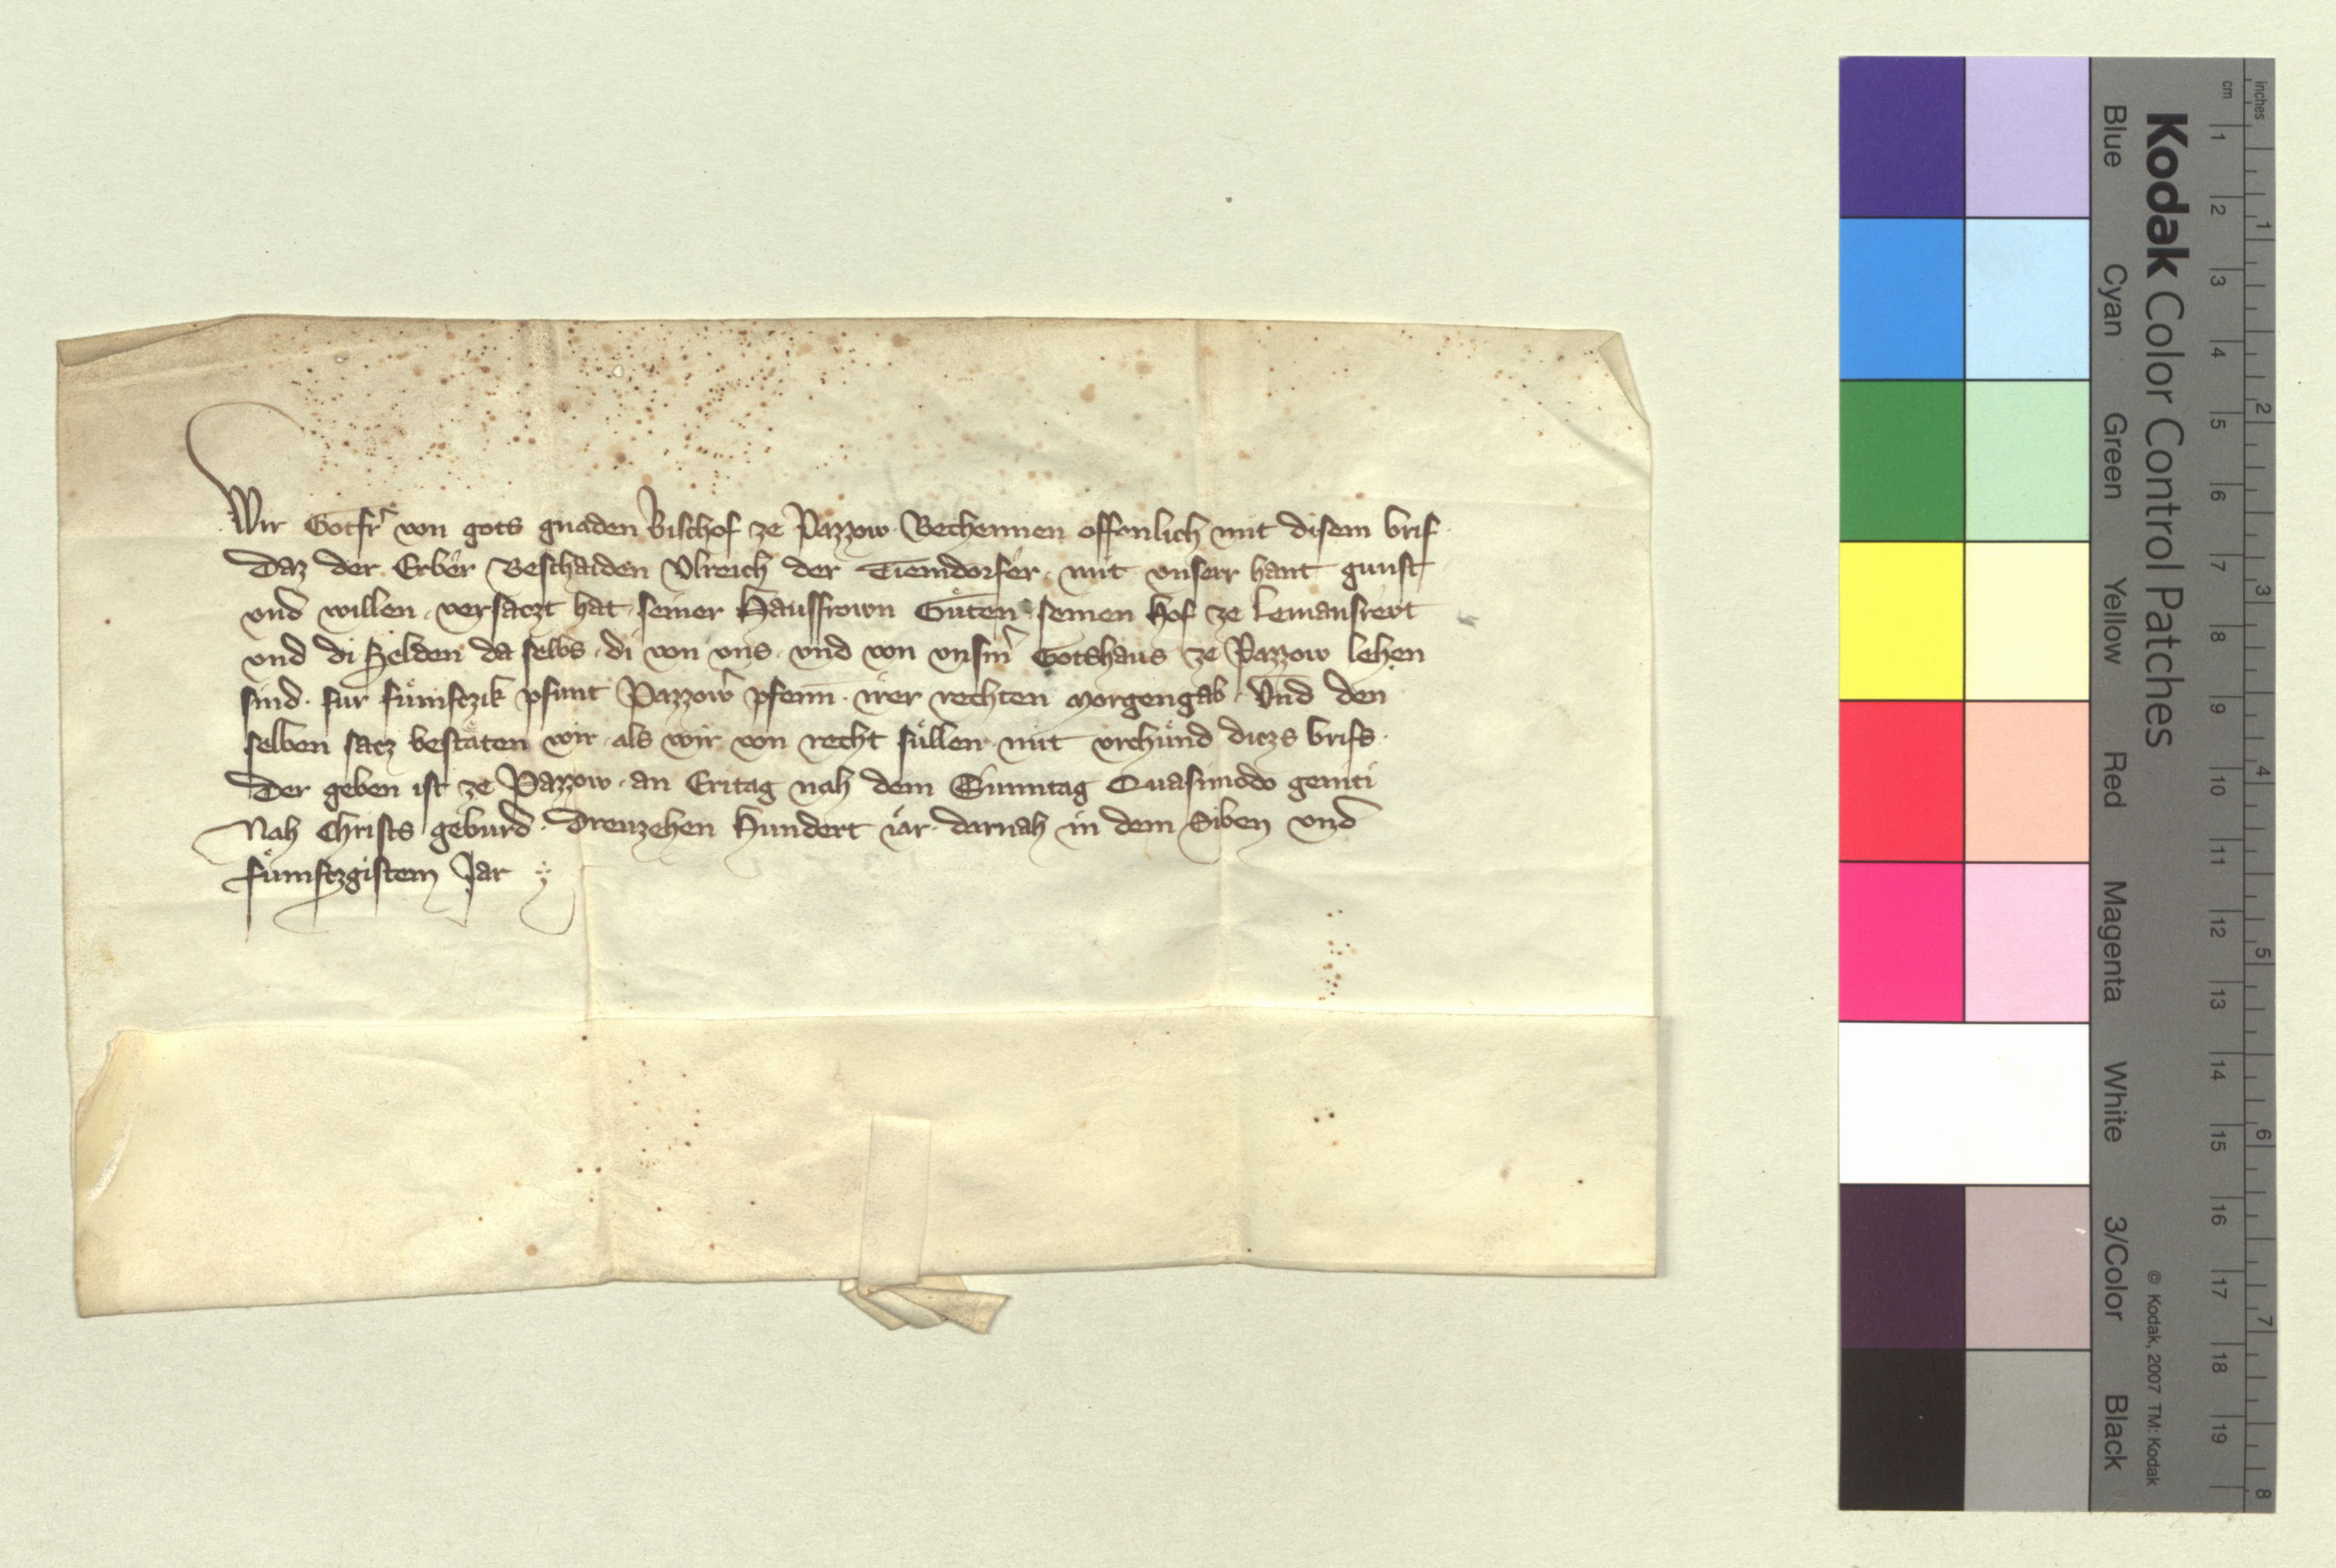 Wir Gotfr̄ von gots gnaden Bischof ze Pazzow. Bechennen offenlich mit disem brif.
Daz der Erber Beschaiden Vlreich der Tiemdorfer. mit vnserr hant gunst
vnd willen. versaczt hat. seiner Hausfrown Guͤten. seinen Hof ze
vnd di Selden da selbs. di von vns. vnd von vnsm̄ Gotshaus ze Pazzow lehen
sind. fur fuͤmfczik pfunt Pazzow̄ pfenn̄. irer rechten Morgengab. Vnd den
selben sacz bestaͤten wir. als wir von recht suͤllen. mit vrchuͤnd diczs brifs.
Der geben ist ze Pazzow. an Eritag nah dem Sunntag Quasimodo geniti
Nah Christs geburd. Dreuzehen Hundert iar. darnah in dem Siben vnd
fuͤmfczgistem Jar
Kodak Color Control Patches
Blue Cyan Green Yellow Red Magenta White 3/Color Black
© Kodak, 2007 TM: Kodak
cm 1 2 3 4 5 6 7 8 9 10 11 12 13 14 15 16 17 18 19
inches 1 2 3 4 5 6 7 8